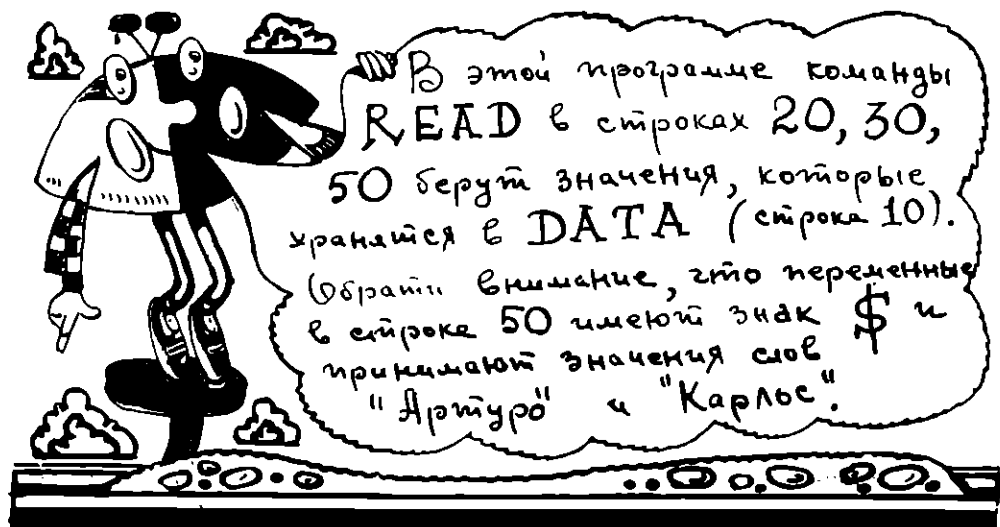 В этой программе команды
READ в строках 20, 30,
50 берут значения, которые
хранятся в DATA (строка 10).
Обрати внимание, что переменные
в строке 50 имеют знак $ и
принимают значения слов
"Артуро" и "Карлос".